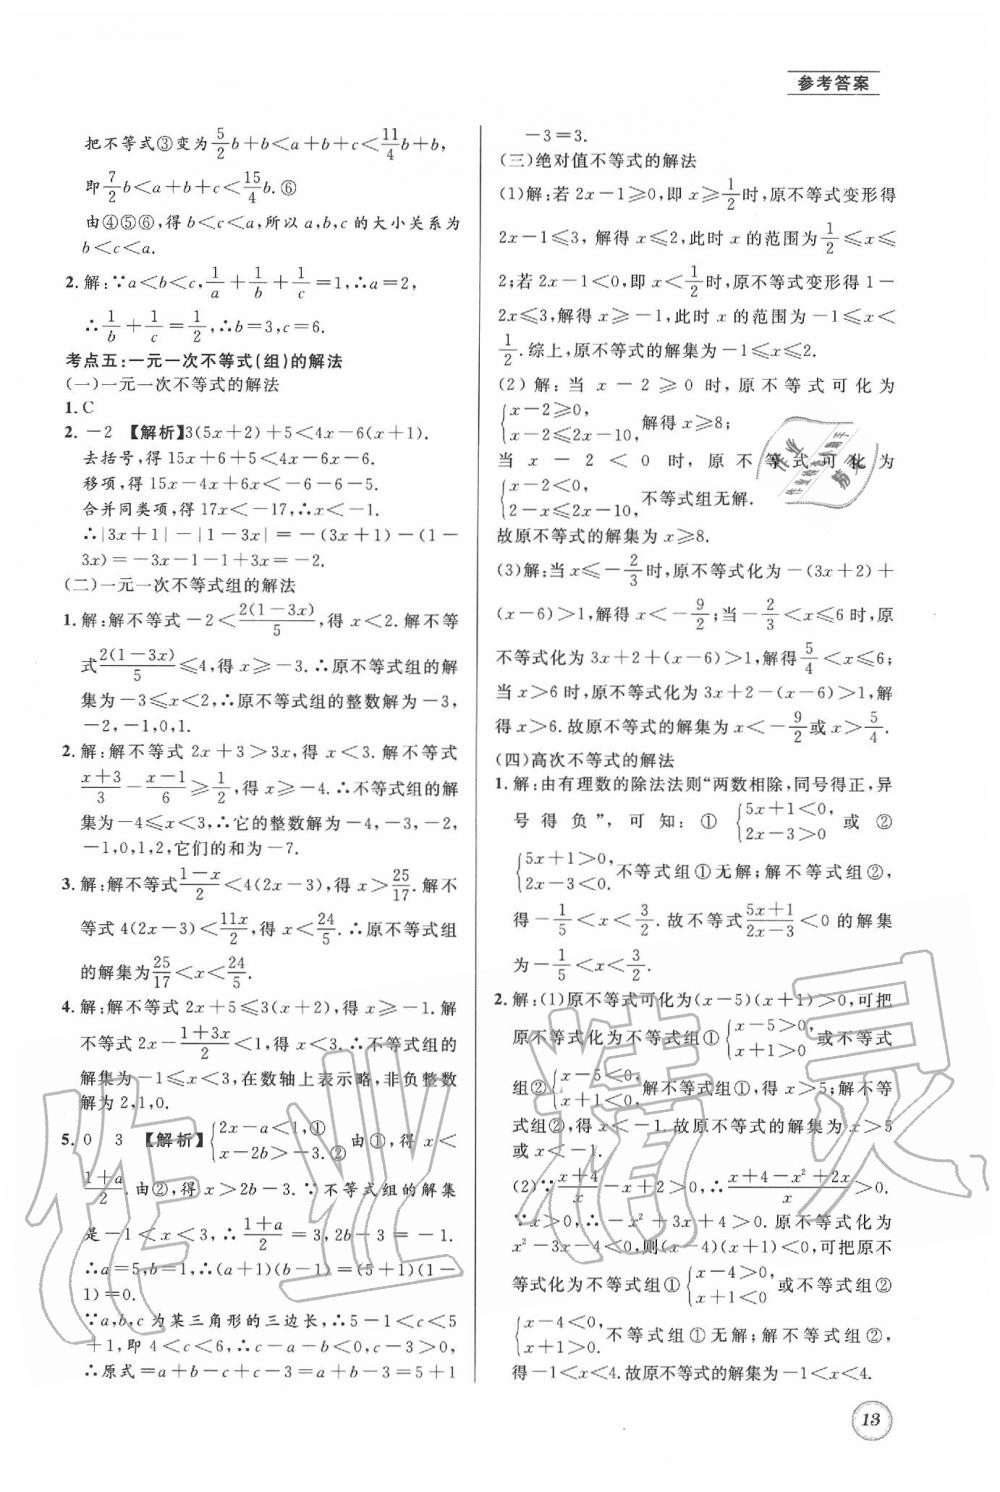 参考答案
把不等式③变为5/2b+b<a+b+c<11/4b+b,
即7/2b<a+b+c<15/4b.⑥
由④⑤⑥,得b<c<a,所以a,b,c的大小关系为
b<c<a.
2.解:∵a<b<c,1/a+1/b+1/c=1,∴a=2,
∴1/b+1/c=1/2,∴b=3,c=6.
考点五:一元一次不等式(组)的解法
(一)一元一次不等式的解法
1.C
2.-2 【解析】3(5x+2)+5<4x-6(x+1).
去括号,得15x+6+5<4x-6x-6.
移项,得15x-4x+6x<-6-6-5.
合并同类项,得17x<-17,∴x<-1.
∴|3x+1|-|1-3x|=-(3x+1)-(1-
3x)=-3x-1-1+3x=-2.
(二)一元一次不等式组的解法
1.解:解不等式-2<2(1-3x)/5,得x<2.解不等
式2(1-3x)/5≤4,得x≥-3.∴原不等式组的解
集为-3≤x<2,∴原不等式组的整数解为-3,
-2,-1,0,1.
2.解:解不等式2x+3>3x,得x<3.解不等式
x+3/3-x-1/6≥1/2,得x≥-4.∴不等式组的解
集为-4≤x<3,∴它的整数解为-4,-3,-2,
-1,0,1,2,它们的和为-7.
3.解:解不等式1-x/2<4(2x-3),得x>25/17.解不
等式4(2x-3)<11x/2,得x<24/5.∴原不等式组
的解集为25/17<x<24/5.
4.解:解不等式2x+5≤3(x+2),得x≥-1.解
不等式2x-1+3x/2<1,得x<3.∴不等式组的
解集为-1≤x<3,在数轴上表示略,非负整数
解为2,1,0.
5.0 3 【解析】{2x-a<1,① x-2b>-3.② 由①,得x<
1+a/2.由②,得x>2b-3.∵不等式组的解集
是-1<x<3,∴1+a/2=3,2b-3=-1.
∴a=5,b=1,∴(a+1)(b-1)=(5+1)(1-
1)=0.
∵a,b,c为某三角形的三边长,∴5-1<c<5
+1,即4<c<6,∴c-1>0,c-3>0,
∴原式=a+b-c+c-3=a+b-3=5+1
-3=3.
(三)绝对值不等式的解法
(1)解:若2x-1≥0,即x≥1/2时,原不等式变形得
2x-1≤3,解得x≤2,此时x的范围为1/2≤x≤
2;若2x-1<0,即x<1/2时,原不等式变形得1-
2x≤3,解得x≥-1,此时x的范围为-1≤x<
1/2.综上,原不等式的解集为-1≤x≤2.
(2)解:当x-2≥0时,原不等式可化为
{x-2≥0, x-2≤2x-10, 解得x≥8;
当x-2<0时,原不等式可化为
{x-2<0, 2-x≤2x-10, 不等式组无解.
故原不等式的解集为x≥8.
(3)解:当x≤-2/3时,原不等式化为-(3x+2)+
(x-6)>1,解得x<-9/2;当-2/3<x≤6时,原
不等式化为3x+2+(x-6)>1,解得5/4<x≤6;
当x>6时,原不等式化为3x+2-(x-6)>1,解
得x>6.故原不等式的解集为x<-9/2或x>5/4.
(四)高次不等式的解法
1.解:由有理数的除法法则“两数相除,同号得正,异
号得负”,可知:①{5x+1<0, 2x-3>0 或②
{5x+1>0, 2x-3<0. 不等式组①无解;解不等式组②,
得-1/5<x<3/2.故不等式5x+1/2x-3<0的解集
为-1/5<x<3/2.
2.解:(1)原不等式可化为(x-5)(x+1)>0,可把
原不等式化为不等式组①{x-5>0, x+1>0 或不等式
组②{x-5<0, x+1<0. 解不等式组①,得x>5;解不等
式组②,得x<-1.故原不等式的解集为x>5或
x<-1.
(2)∵x+4/x-x+2>0,∴x+4-x²+2x/x>0.
∵x>0,∴-x²+3x+4>0.原不等式可化为
x²-3x-4<0,则(x-4)(x+1)<0,可把原不
等式化为不等式组①{x-4>0, x+1<0 或不等式组②
{x-4<0, x+1>0. 不等式组①无解;解不等式组②,
得-1<x<4.故原不等式的解集为-1<x<4.
13
作业精灵